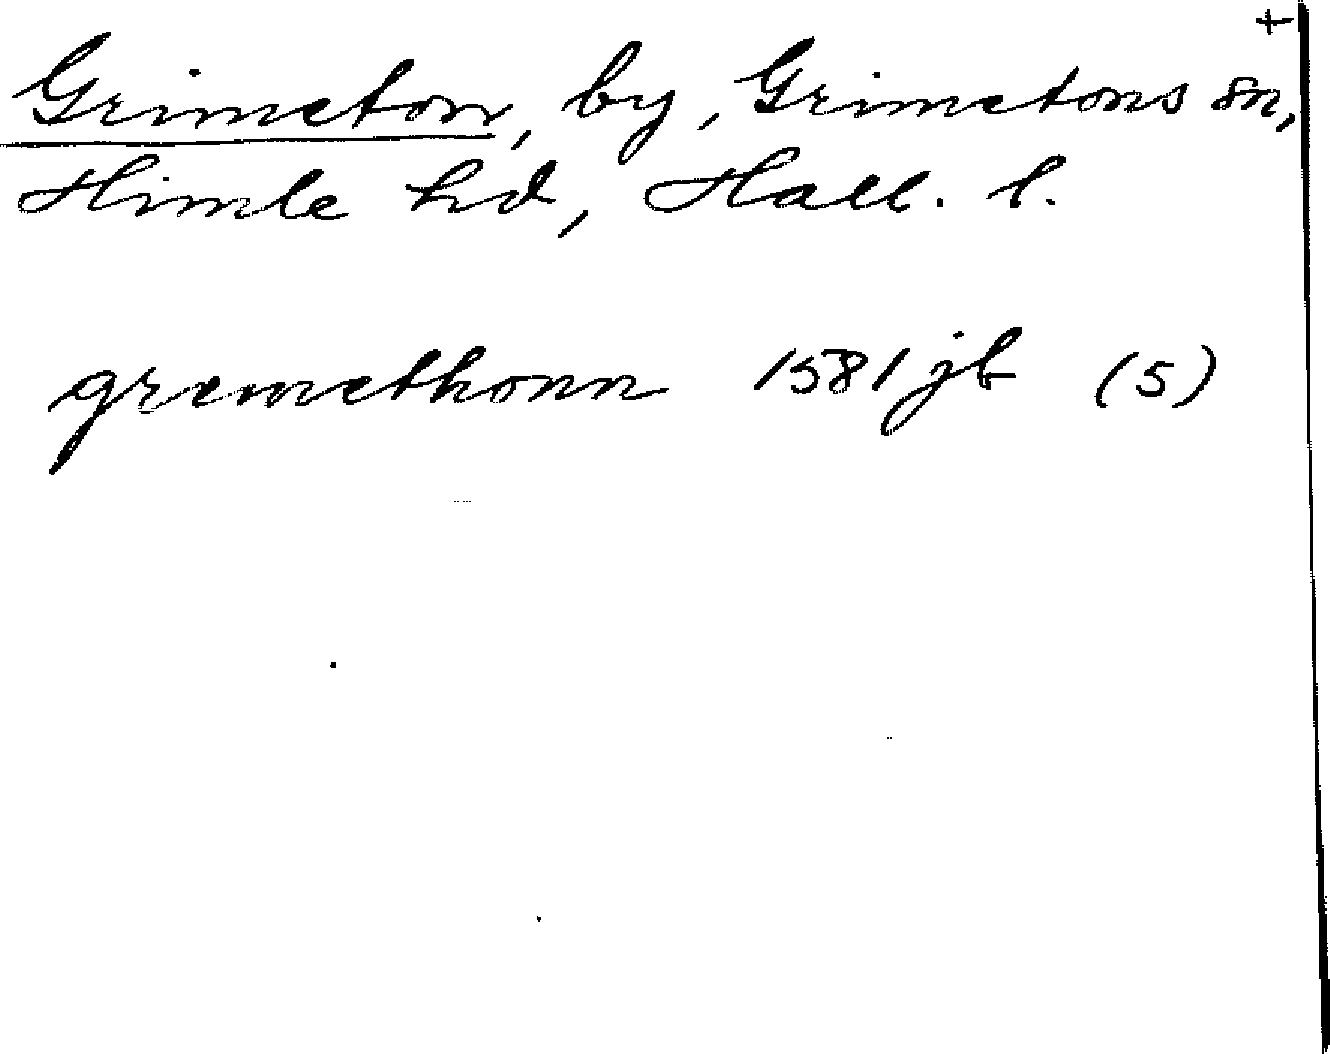 +
Grimeton, by, Grimetons sn,
Himle hd, Hall. l.
gremethonn 1581 jb (5)